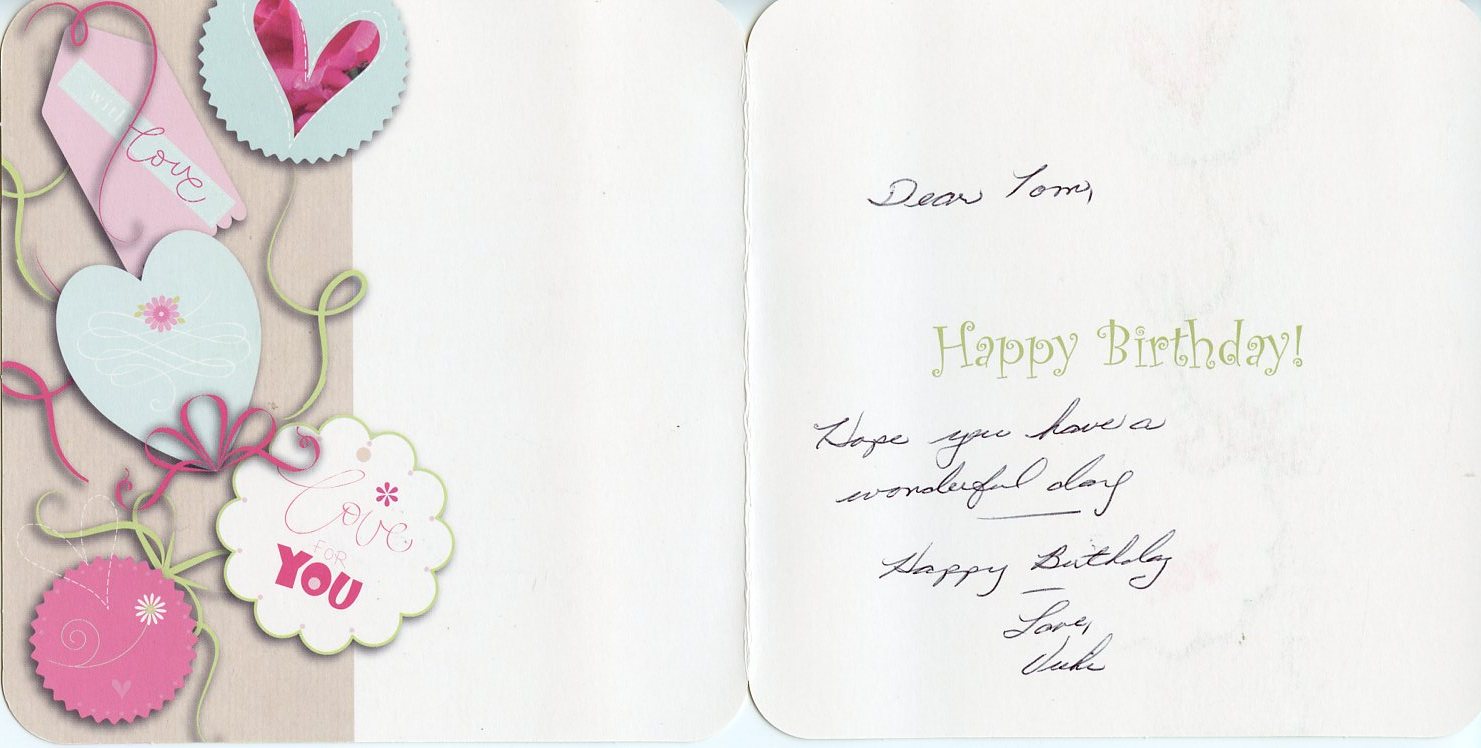 with
love
Love
FOR
YOU
Dear Tom,
Happy Birthday!
Hope you have a
wonderful day
Happy Birthday
Love,